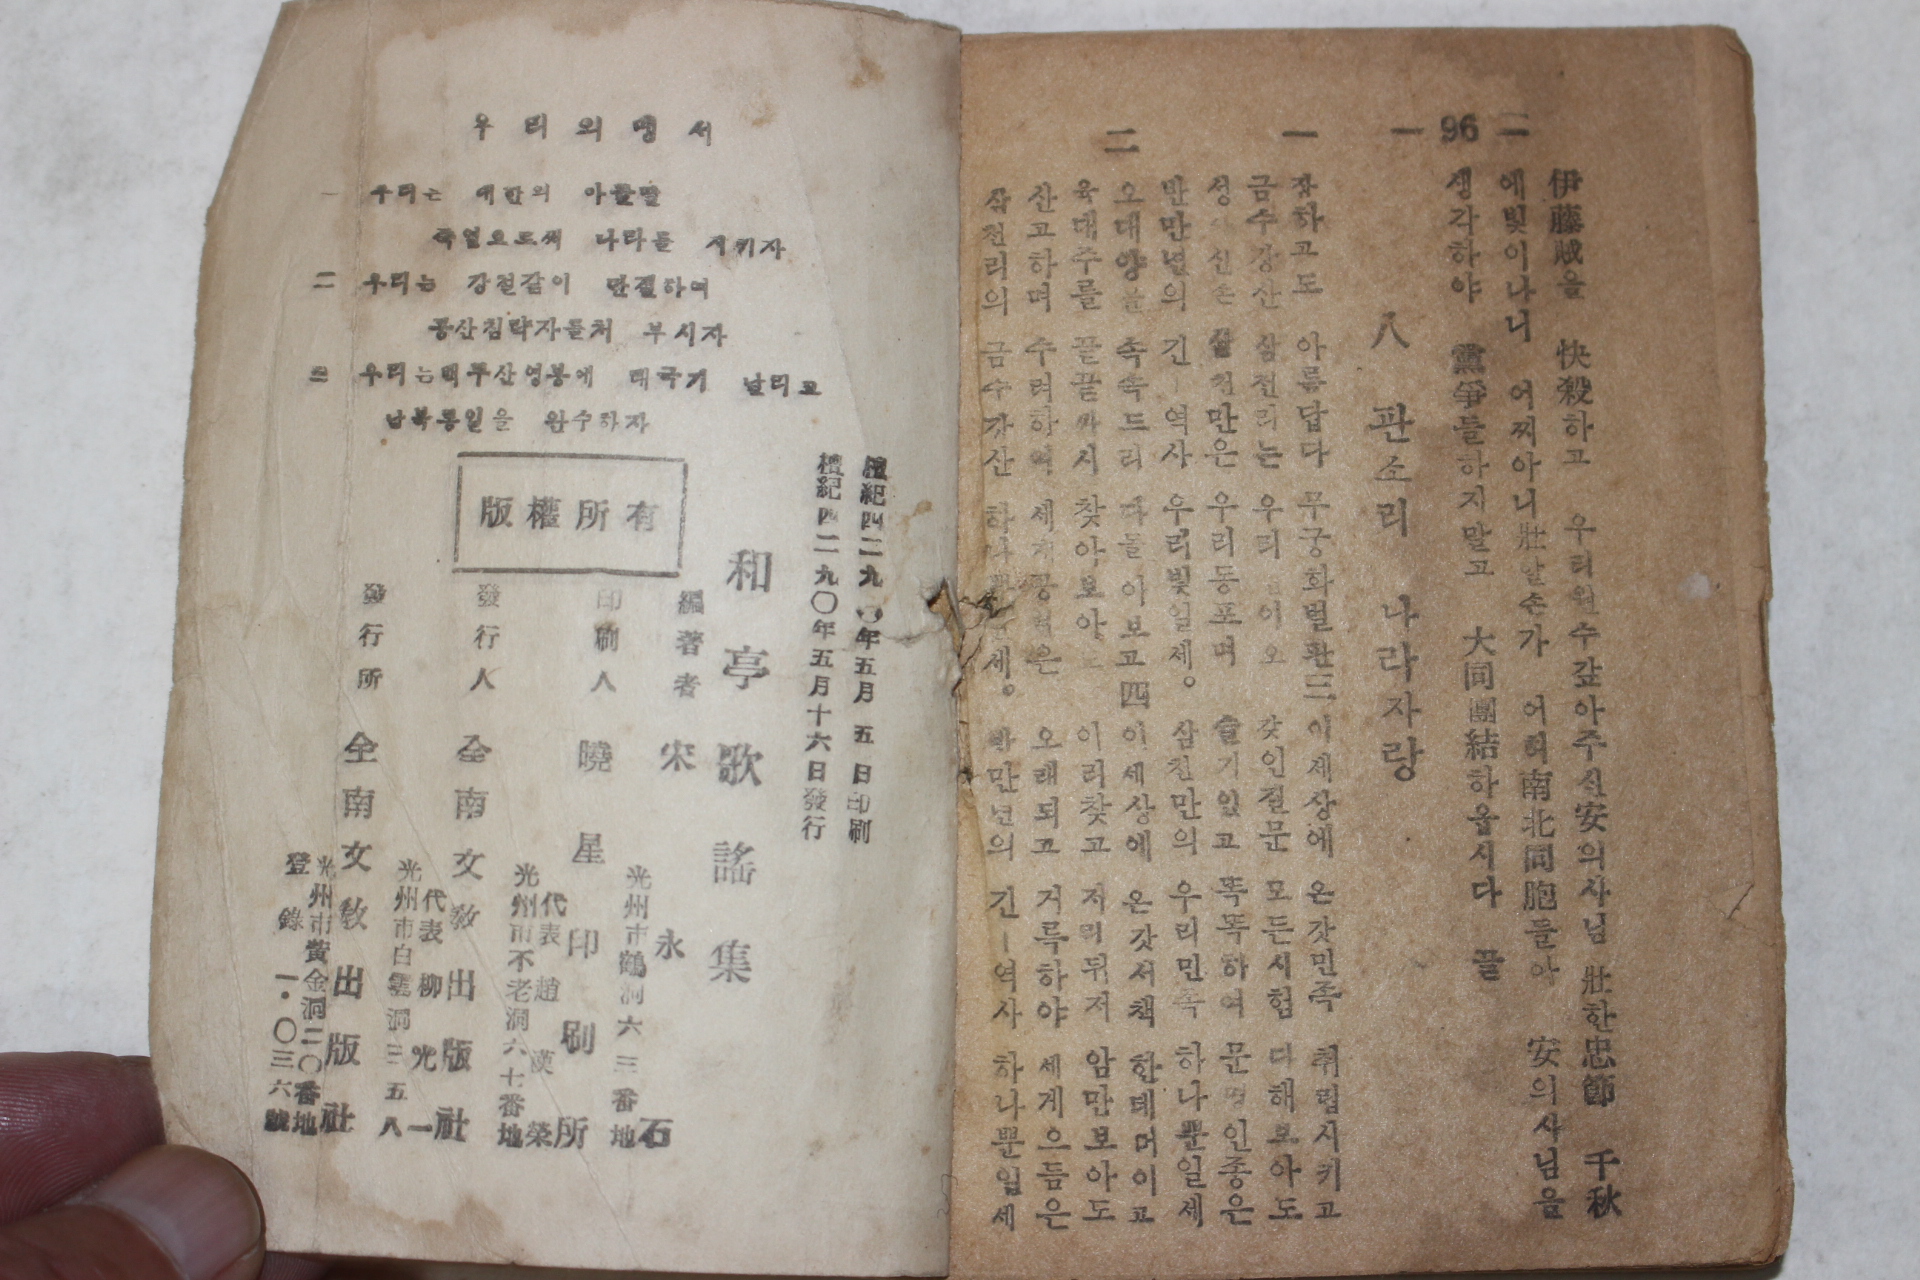 一 96 二
伊藤賊을 快殺하고 우리원수갚아주신安의사님 壯한忠節 千秋
에빛이나니 어찌아니壯할손가 어허南北同胞들아 安의사님을
생각하야 黨爭들하지말고 大同團結하옵시다 끝
八 판소리 나라자랑
一
장하고도 아름답다 무궁화벌판三 이제상에 온갖민족 취림시키고
금수강산 삼천리는 우리 이오 갖인절문 모든시험 다해보아도
성 신손 삼천만은 우리동포며 슬기있고 똑똑하여 문명인종은
만만년의 긴ㅣ역사 우리빛일세。 삼천만의 우리민족 하나뿐일세
二
오대양을 속속드리 다돌아보고四 이세상에 온갖서책 한데머이고
육대주를 끝끝까지 찾아보아 이리찾고 저리뒤저 암만보아도
산고하며 수려하여 세 은 오래되고 거륵하야 세게으듬은
삼천리의 금수강산 하나뿐 세。 만년의 긴ㅣ역사 하나뿐일세
우리의맹서
一 우리는 대한의 아들딸
죽엄으로써 나라를 지키자
二 우리는 강철같이 단결하여
공산침략자를처 부시자
三 우리는백두산영봉에 태극기 날리고
남북통일을 완수하자
檀紀四二九〇年五月 五日印刷
檀紀四二九〇年五月十六日發行
版權所有
和亭歌謠集
編著者 宋永石
光州市鶴洞六三番地
印刷人 曉星印刷所
代表 趙漢榮
光州市不老洞六十番地
發行人 全南文敎出版社
代表 柳光一
光州市白雲洞三五八
發行所 全南文敎出版社
光州市黃金洞二〇番地
登錄 一・〇三六號